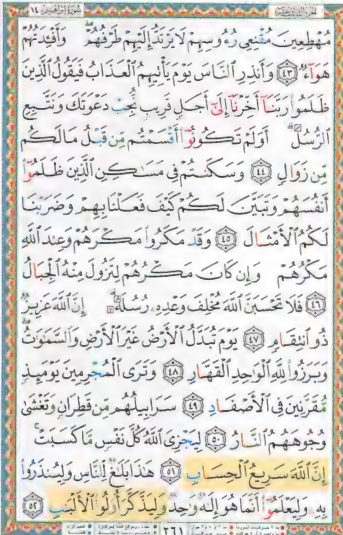 سورة إبراهيم ١٤
مُهْطِعِينَ مُقْنِعِي رُءُوسِهِمْ لَا يَرْتَدُّ إِلَيْهِمْ طَرْفُهُمْ ۖ وَأَفْئِدَتُهُمْ
هَوَآءٌ ﴿٤٣﴾ وَأَنذِرِ ٱلنَّاسَ يَوْمَ يَأْتِيهِمُ ٱلْعَذَابُ فَيَقُولُ ٱلَّذِينَ
ظَلَمُوا۟ رَبَّنَآ أَخِّرْنَآ إِلَىٰٓ أَجَلٍ قَرِيبٍ نُّجِبْ دَعْوَتَكَ وَنَتَّبِعِ
ٱلرُّسُلَ ۗ أَوَلَمْ تَكُونُوٓا۟ أَقْسَمْتُم مِّن قَبْلُ مَا لَكُم
مِّن زَوَالٍ ﴿٤٤﴾ وَسَكَنتُمْ فِى مَسَٰكِنِ ٱلَّذِينَ ظَلَمُوٓا۟
أَنفُسَهُمْ وَتَبَيَّنَ لَكُمْ كَيْفَ فَعَلْنَا بِهِمْ وَضَرَبْنَا
لَكُمُ ٱلْأَمْثَالَ ﴿٤٥﴾ وَقَدْ مَكَرُوا۟ مَكْرَهُمْ وَعِندَ ٱللَّهِ
مَكْرُهُمْ وَإِن كَانَ مَكْرُهُمْ لِتَزُولَ مِنْهُ ٱلْجِبَالُ
﴿٤٦﴾ فَلَا تَحْسَبَنَّ ٱللَّهَ مُخْلِفَ وَعْدِهِۦ رُسُلَهُۥٓ ۗ إِنَّ ٱللَّهَ عَزِيزٌ
ذُو ٱنتِقَامٍ ﴿٤٧﴾ يَوْمَ تُبَدَّلُ ٱلْأَرْضُ غَيْرَ ٱلْأَرْضِ وَٱلسَّمَٰوَٰتُ ۖ
وَبَرَزُوا۟ لِلَّهِ ٱلْوَٰحِدِ ٱلْقَهَّارِ ﴿٤٨﴾ وَتَرَى ٱلْمُجْرِمِينَ يَوْمَئِذٍ
مُّقَرَّنِينَ فِى ٱلْأَصْفَادِ ﴿٤٩﴾ سَرَابِيلُهُم مِّن قَطِرَانٍ وَتَغْشَىٰ
وُجُوهَهُمُ ٱلنَّارُ ﴿٥٠﴾ لِيَجْزِىَ ٱللَّهُ كُلَّ نَفْسٍ مَّا كَسَبَتْ ۚ
إِنَّ ٱللَّهَ سَرِيعُ ٱلْحِسَابِ ﴿٥١﴾ هَٰذَا بَلَٰغٌ لِّلنَّاسِ وَلِيُنذَرُوا۟
بِهِۦ وَلِيَعْلَمُوٓا۟ أَنَّمَا هُوَ إِلَٰهٌ وَٰحِدٌ وَلِيَذَّكَّرَ أُو۟لُوا۟ ٱلْأَلْبَٰبِ ﴿٥٢﴾
٢٦١